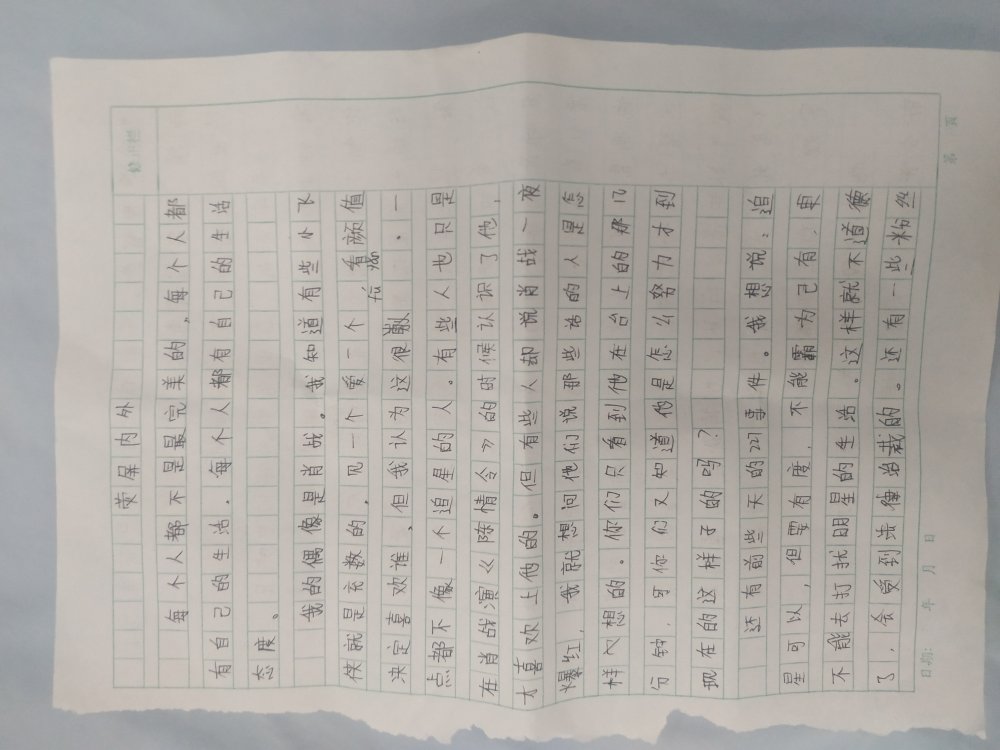 荧屏内外
每个人都不是最完美的,每个人都
有自己的生活。每个人都有自己的生活
态度。
我的偶像是肖战。我知道有些小飞
侠就是充数的,见一个爱一个看颜值
yan
决定喜欢谁,但我认为这很。一
点都不像一个追星的人。有些人也只是
在肖战演《陈情令》的时候认识了他,
才喜欢上他的。但有些人却说肖战一夜
爆红,我就想问他们说那些话的人是怎
样想的。你们只看到他在台上的那几
分钟,可你们又知道他是怎么努力才到
现在的这样子的吗?
还有前些天的227事件。我想说:追
星可以,但要有度,不能霸为己有,更
不能去打扰明星的生活。这样就不道德
了,会受到法律治裁的。还有一些粉丝
修改栏
第 页
日期: 年 月 日